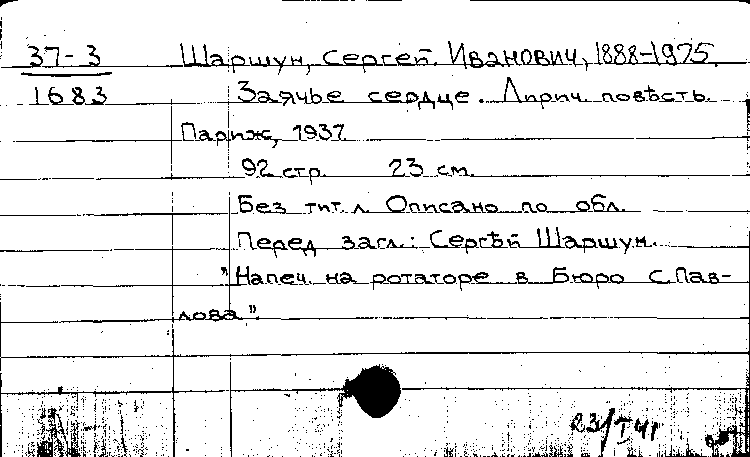 37-3 Шаршун, Сергей Иванович, 1888-1975.
1683 Заячье сердце. Лирич. повѣсть.
Париж, 1937.
92 стр. 23 см.
Без тит. л. Описано по обл.
Перед загл.: Сергѣй Шаршун.
"Напеч. на ротаторе в Бюро С. Пав-
лова".
23/I 41